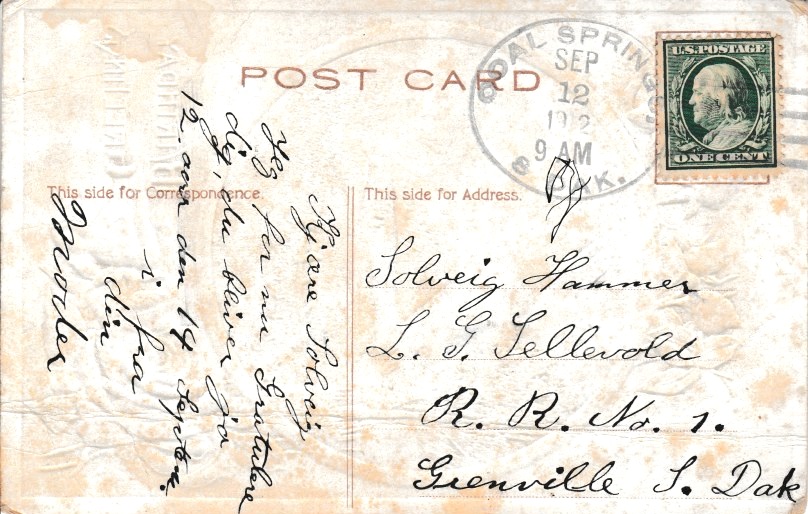 POST CARD
CODAL SPRINGS
SEP
12
1912
9 AM
S. DAK.
U.S. POSTAGE
ONE CENT
This side for Correspondence.
This side for Address.
Kjære Solveig
Jeg far nu Gratulere
dig, du bliver jo
12. aar den 14 Septem.
i fra
din
Moder
Solveig Hammer
L. G. Sellevold
R. R. No. 1.
Grenville S. Dak